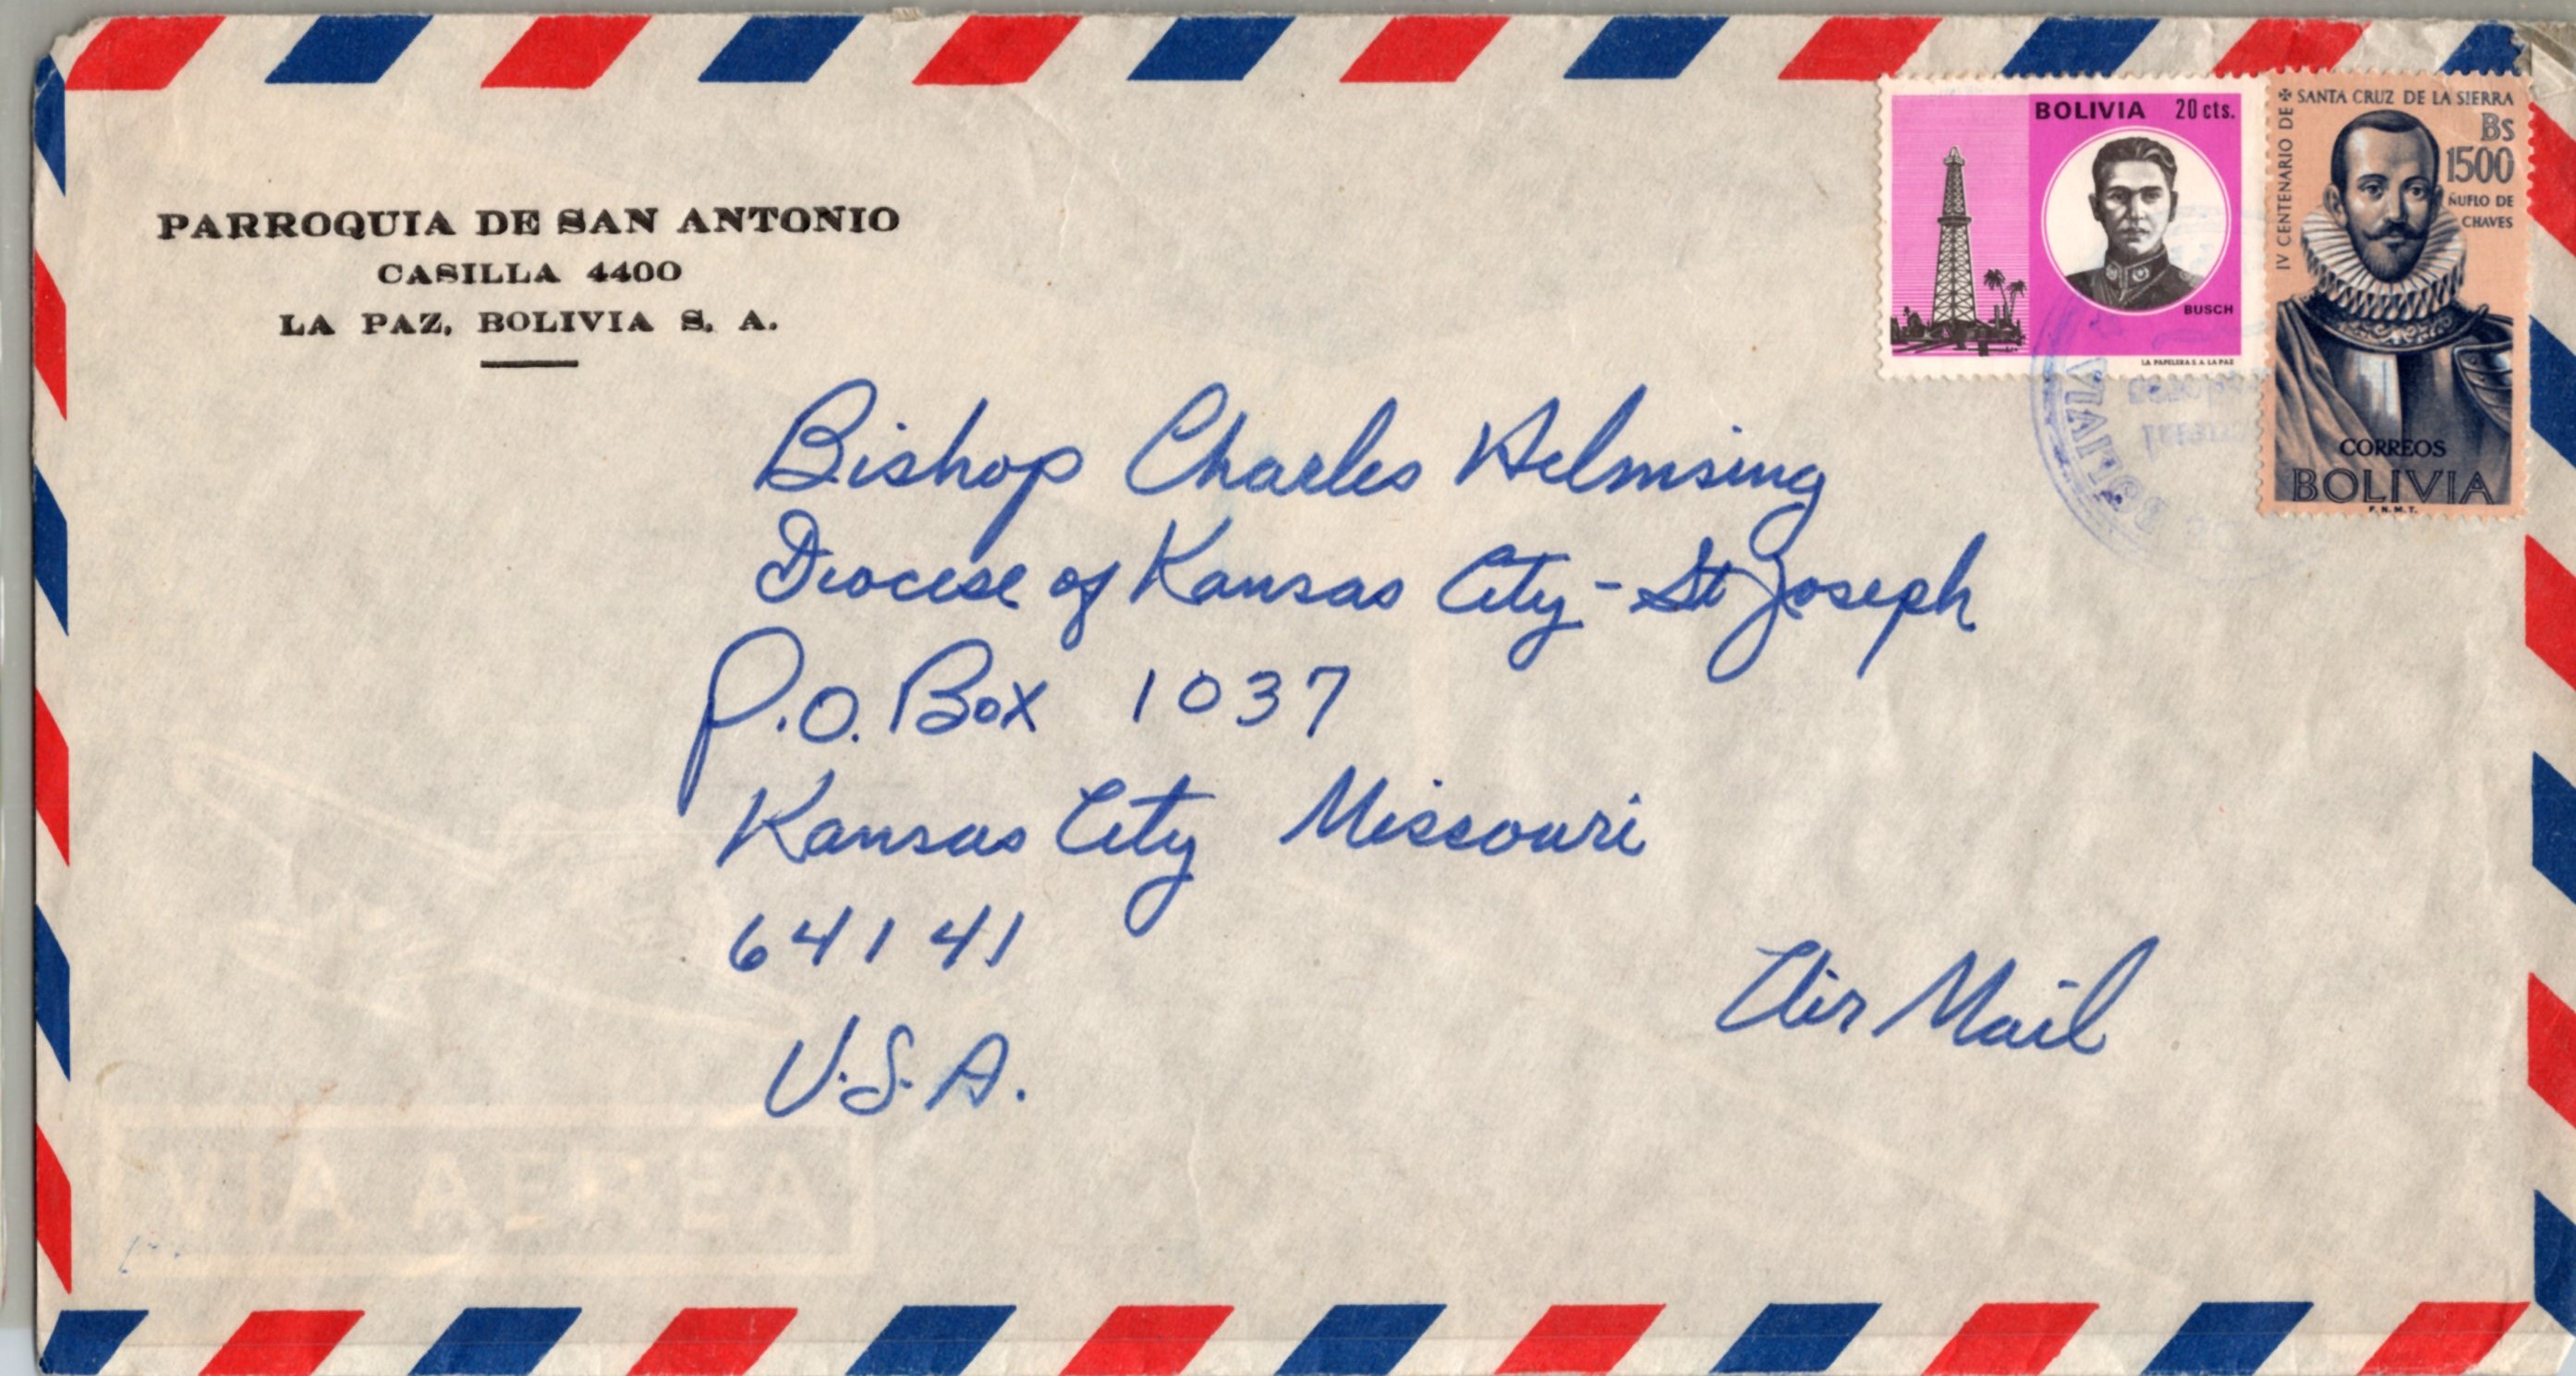 PARROQUIA DE SAN ANTONIO
CASILLA 4400
LA PAZ, BOLIVIA S. A.
BOLIVIA 20 cts.
BUSCH
LA PAPELERA S. A. LA PAZ
IV CENTENARIO DE ✠ SANTA CRUZ DE LA SIERRA
Bs
1500
ÑUFLO DE
CHAVES
CORREOS
BOLIVIA
F. N. M. T.
BOLIVIA
Bishop Charles Helmsing
Diocese of Kansas City - St Joseph
P.O. Box 1037
Kansas City Missouri
64141
U.S.A.
Air Mail
VIA AEREA